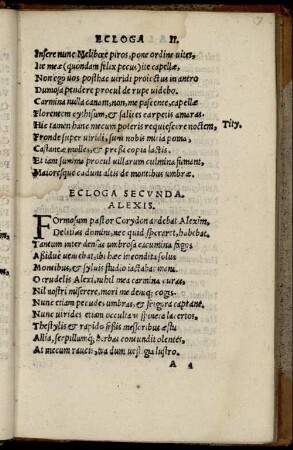 ECLOGA II.
Insere nunc Melibœe piros, pone ordine uites,
Ite meæ (quondam felix pecus) ite capellæ,
Non ego uos posthac uiridi proiectus in antro
Dumosa pendere procul de rupe uidebo.
Carmina nulla canam, non, me pascente, capellæ
Florentem cythisum, & salices carpetis amaras.
Hic tamen hanc mecum poteris requiescere noctem, Tity.
Fronde super uiridi, sunt nobis mitia poma,
Castaneæ molles, & pressi copia lactis.
Et iam summa procul uillarum culmina fumant,
Maioresque cadunt altis de montibus umbræ.
ECLOGA SECVNDA.
ALEXIS.
Formosum pastor Corydon ardebat Alexim,
Delitias domini, nec quid speraret, habebat.
Tantum inter densas umbrosa cacumina fagos
Aßidue ueniebat, ibi hæc incondita solus
Montibus, & syluis studio iactabat inani.
O crudelis Alexi, nihil mea carmina curas,
Nil nostri miserere, mori me deniq; cogis.
Nunc etiam pecudes umbras, & frigora captant.
Nunc uirides etiam occultant spineta lacertos.
Thestylis & rapido feßis messoribus æstu
Allia, serpillumq; herbas contundit olentes,
At mecum raucis, tua dum uestigia lustro.
A 4